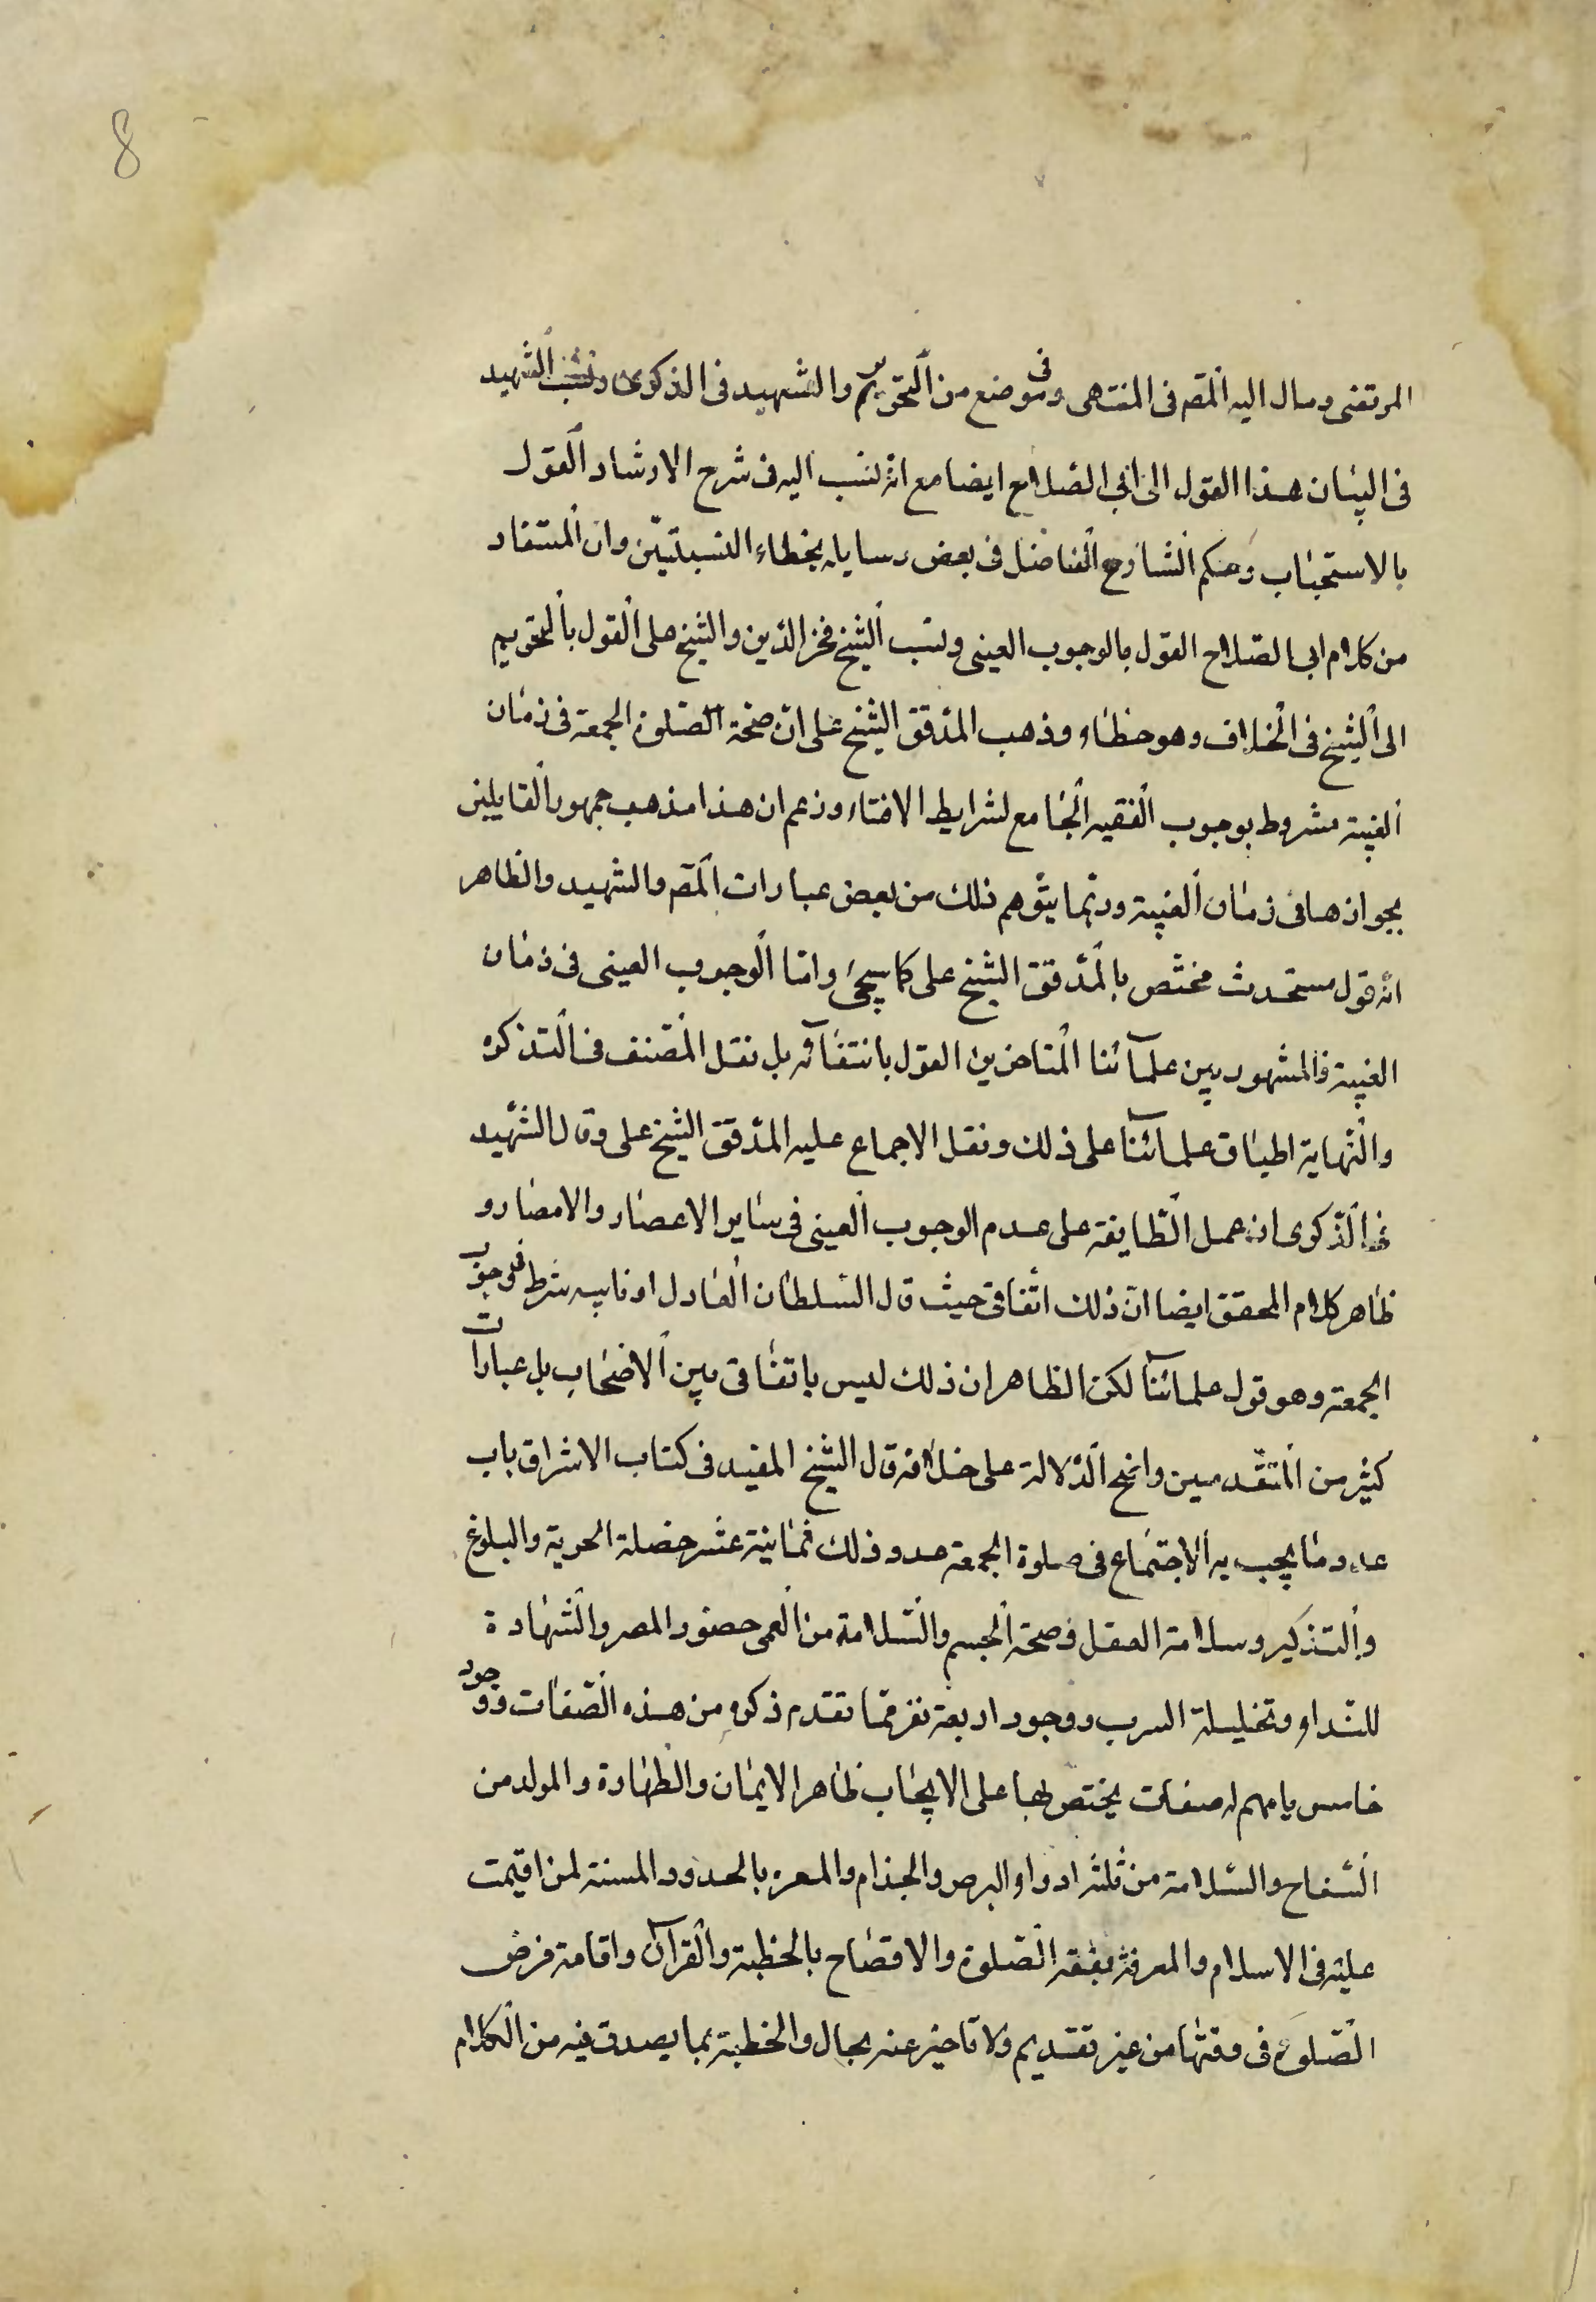 8
المرتضى ومال اليه المصّ فى المنتهى وفى موضع من التحرير والشهيد فى الذكرى ونسب الشهيد
فى البيان هذا القول الى ابى الصّلاح ايضا مع انّه نسب اليه فى شرح الارشاد القول
بالاستحباب وحكم الشارح الفاضل فى بعض رسايله بخطاء النسبتيّن وان المستفاد
من كلام ابى الصّلاح القول بالوجوب العينى ونسب الشّيخ فخر الدّين والشيخ على القول بالتحريم
الى الشّيخ فى الخلاف وهو خطاء وذهب المدّقق الشيخ على انّ صحّة الصّلوة الجمعة فى زمان
الغيبة مشروط بوجوب الفقيه الجامع لشرايط الافتاء وزعم ان هذا مذهب جمهور القايلين
بجوازها فى زمان الغيبة وربّما يتوّهم ذلك من بعض عبارات المصّ والشهيد والظاهر
انّه قول مستحدث مختّص بالمدّقق الشيخ على كما سيجئ وامّا الوجوب العينى فى زمان
الغيبة فالمشهور بين علمآئنا المتاخرين القول بانتفآئه بل نقل المصّنف فى التذكره
والنّهاية اطباق علمآئنا على ذلك ونقل الاجماع عليه المدّقق الشيخ على وقال الشّهيد
فى الذّكرى ان عمل الطّايفة على عدم الوجوب العينى فى ساير الاعصار والامصار و
ظاهر كلام المحقق ايضا انّ ذلك اتّفاقى حيث قال السلطان العادل او نايبه شرط فى وجوب
الجمعة وهو قول علمآئنا لكن الظاهر ان ذلك ليس باتفاقى بين الاصحاب بل عبارات
كثير من المتقّدمين واضح الدّلالة على خلافه قال الشيخ المفيد فى كتاب الاشراق باب
عدد ما يجب به الاجتماع فى صلوة الجمعة عدد ذلك ثمانية عشر خصلة الحرية والبلوغ
والتذكير وسلامة العقل وصحة الجسم والسّلامة من العمى حضور المصر والشّهادة
للنّداء وتخليلة السرب ووجود اربعة نفر ممّا تقدم ذكره من هذه الصّفات ووجود
خامس يامهم له صفات يختص بها على الايجاب ظاهر الايمان والطّهارة والمولد من
السّفاح والسّلامة من ثلثه ادواء البرص والجذام والمعره بالحدود المسنة لمن اقيمت
عليه فى الاسلام والمعرفة بفقه الصّلوة والافصاح بالخطبة والقرآن واقامة فرض
الصّلوة فى وقتها من غير تقديم ولا تاخير عنه بحال والخطبة بما يصدق فيه من الكلام